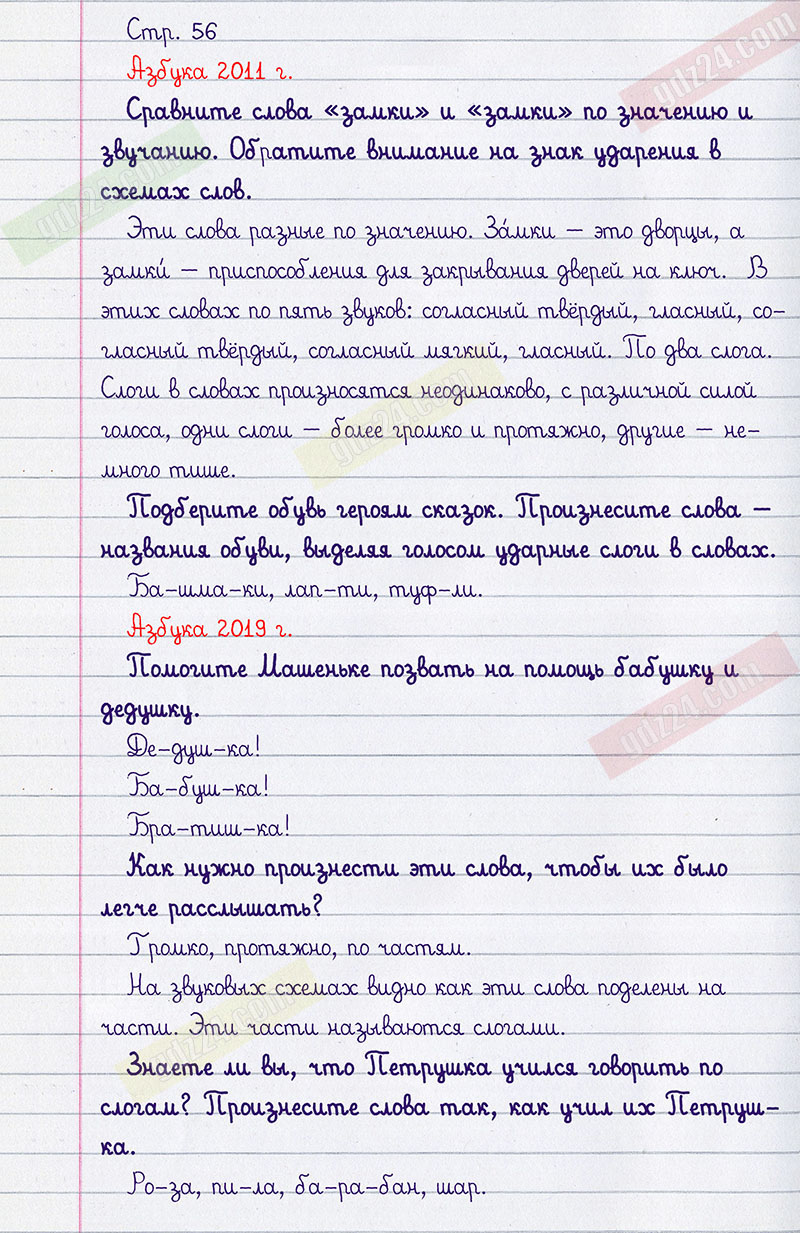 Стр. 56
Азбука 2011 г.
Сравните слова «замки» и «замки» по значению и
звучанию. Обратите внимание на знак ударения в
схемах слов.
Эти слова разные по значению. За́мки – это дворцы, а
замки́ – приспособления для закрывания дверей на ключ. В
этих словах по пять звуков: согласный твёрдый, гласный, со-
гласный твёрдый, согласный мягкий, гласный. По два слога.
Слоги в словах произносятся неодинаково, с различной силой
голоса, одни слоги – более громко и протяжно, другие – не-
много тише.
Подберите обувь героям сказок. Произнесите слова –
названия обуви, выделяя голосом ударные слоги в словах.
Ба-шма-ки, лап-ти, туф-ли.
Азбука 2019 г.
Помогите Машеньке позвать на помощь бабушку и
дедушку.
Де-душ-ка!
Ба-буш-ка!
Бра-тиш-ка!
Как нужно произнести эти слова, чтобы их было
легче расслышать?
Громко, протяжно, по частям.
На звуковых схемах видно как эти слова поделены на
части. Эти части называются слогами.
Знаете ли вы, что Петрушка учился говорить по
слогам? Произнесите слова так, как учил их Петруш-
ка.
Ро-за, пи-ла, ба-ра-бан, шар.
gdz24.com
gdz24.com
gdz24.com
gdz24.com
gdz24.com